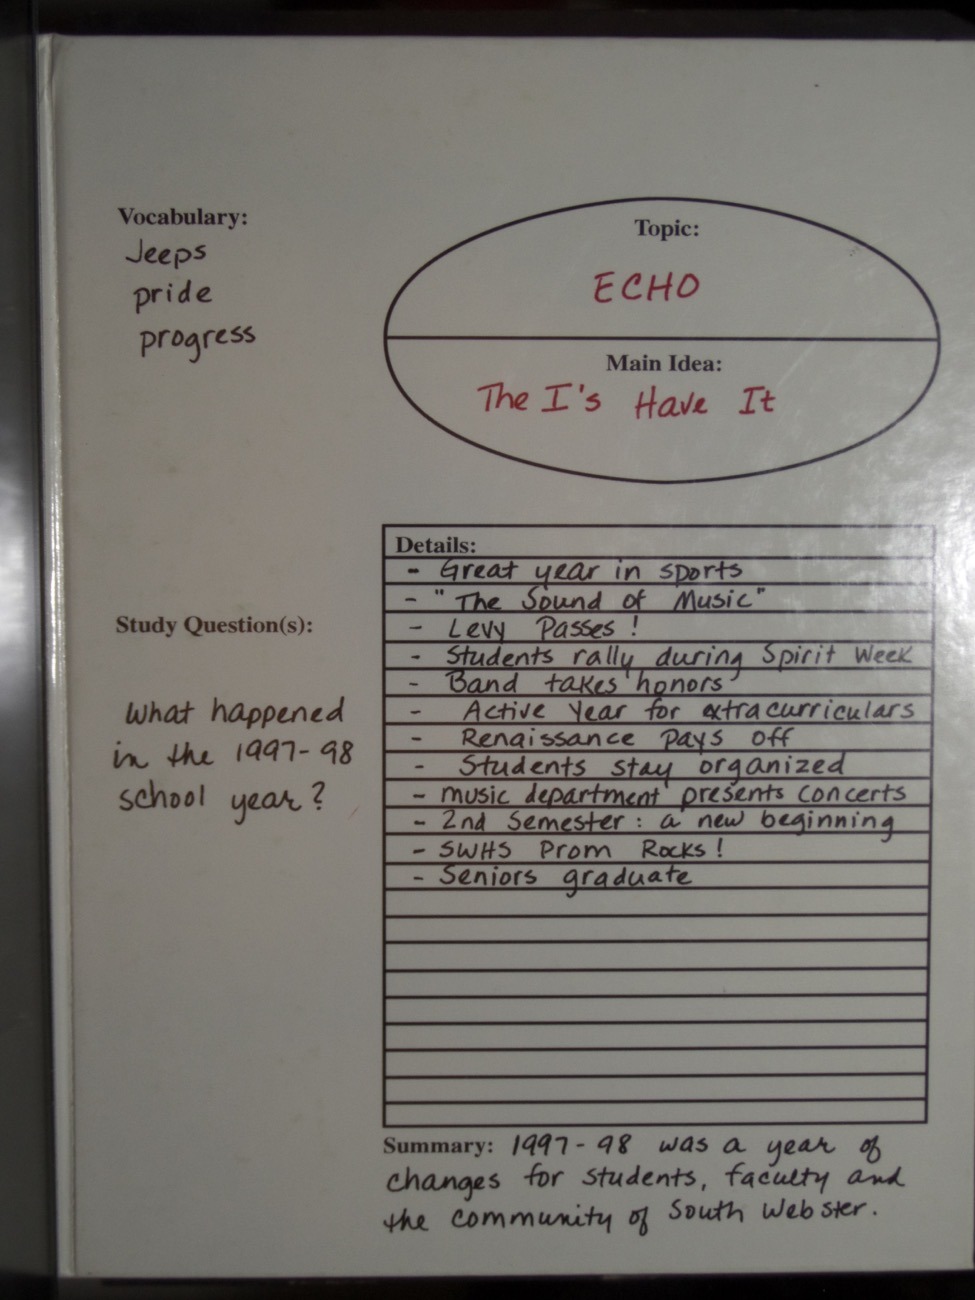 Vocabulary:
Jeeps
pride
progress
Topic:
ECHO
Main Idea:
The I's Have It
Details:
- Great year in sports
- "The Sound of Music"
- Levy Passes!
- Students rally during Spirit Week
- Band takes honors
- Active Year for extracurriculars
- Renaissance Pays off
- Students stay organized
- music department presents concerts
- 2nd Semester: a new beginning
- SWHS Prom Rocks!
- Seniors graduate
Study Question(s):
What happened
in the 1997-98
school year?
Summary: 1997-98 was a year of
changes for students, faculty and
the community of South Webster.